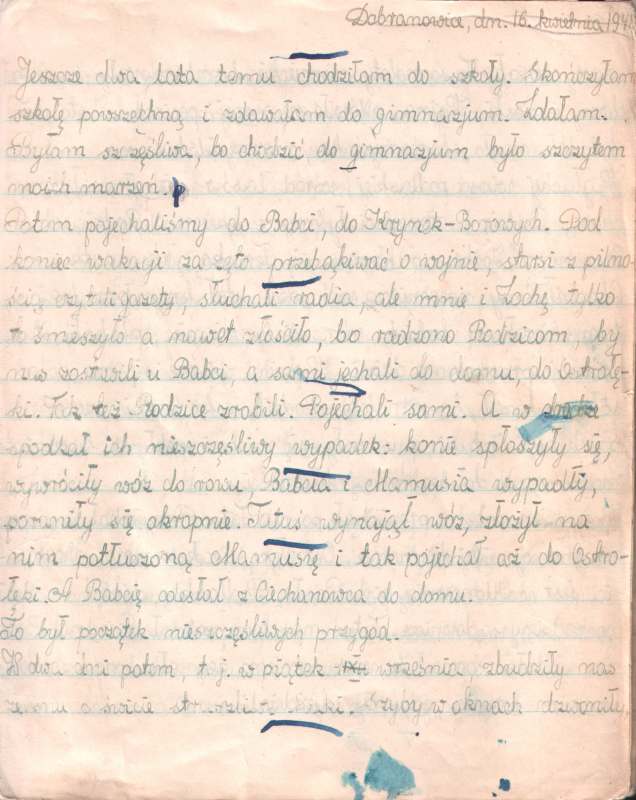 Dobranowice, dn. 16. kwietnia 194
Jeszcze dwa lata temu chodziłam do szkoły. Skończyłam
szkołę powszechną i zdawałam do gimnazjum. Zdałam.
Byłam szczęśliwa, bo chodzić do gimnazjum było szczytem
moich marzeń.
Potem pojechaliśmy do Babci, do Krynek-Borowych. Pod
koniec wakacji zaczęto przebąkiwać o wojnie, starsi z pilno-
ścią czytali gazety, słuchali radia, ale mnie i Zochę tylko
to śmieszyło a nawet złościło, bo radzono Rodzicom by
nas zostawili u Babci, a sami jechali do domu, do Ostrołę-
ki. Tak też Rodzice zrobili. Pojechali sami. A w drodze
spodkał ich nieszczęśliwy wypadek: konie spłoszyły się,
wywróciły wóz do rowu, Babcia i Mamusia wypadły,
poraniły się okropnie. Tatuś wynajął wóz, złożył na
nim potłuczoną Mamusię i tak pojechał aż do Ostro-
łęki. A Babcię odesłał z Ciechanowca do domu.
To był początek nieszczęśliwych przygód.
W dwa dni potem, t.j. w piątek września, zbudziły nas
rano o świcie straszliwe huki. Szyby w oknach dzwoniły,